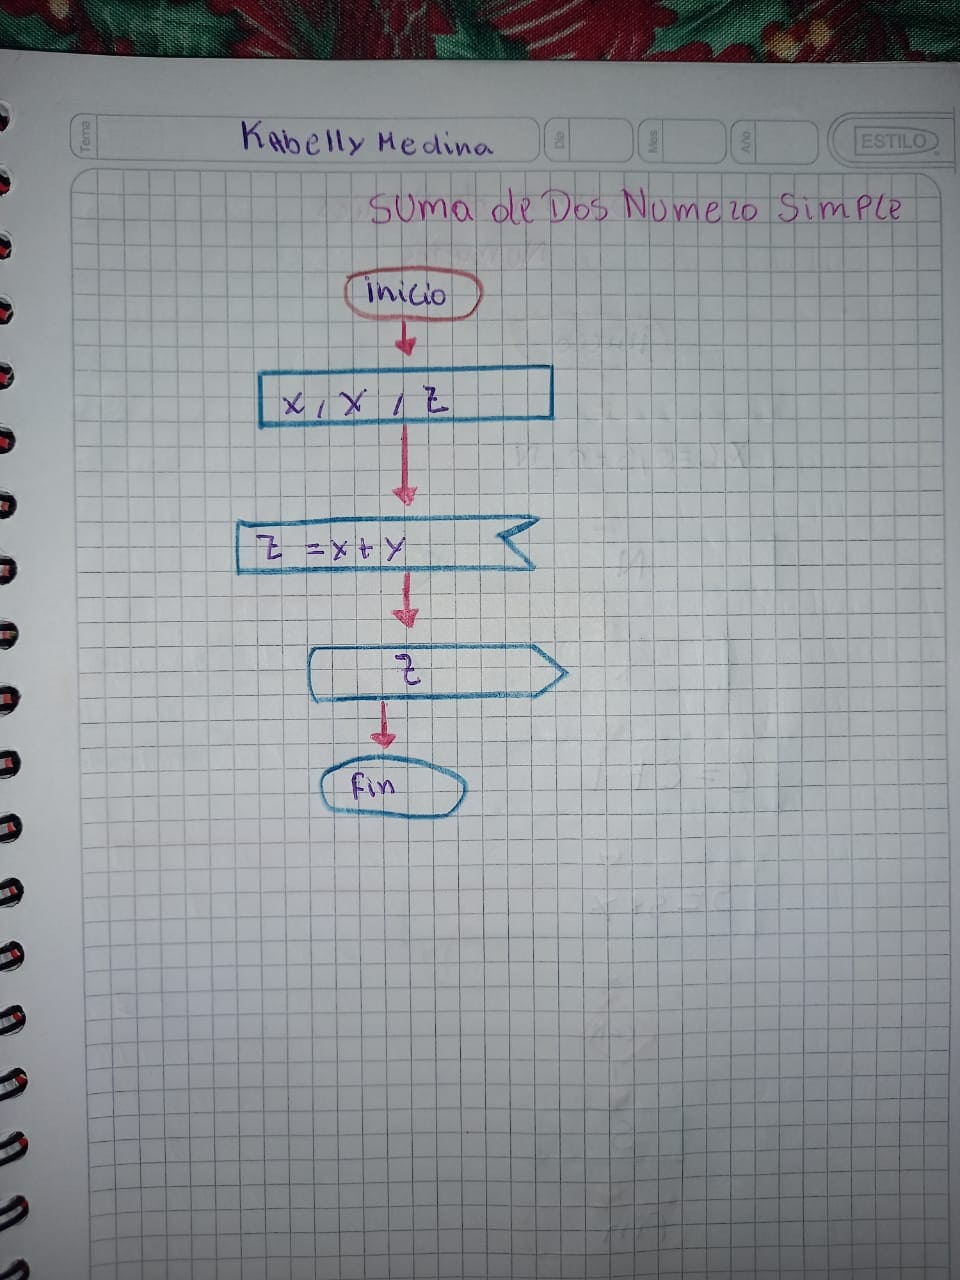 Tema
Kabelly Medina
Dia
Mes
Año
ESTILO
Suma de Dos Numero Simple
inicio
x, x, z
z = x + y
z
Fin